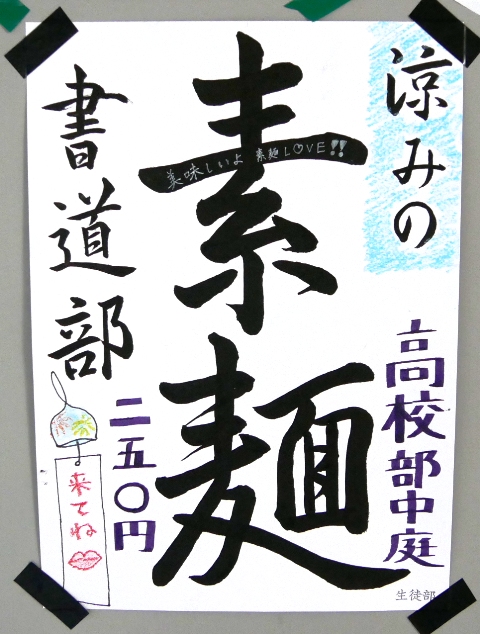 涼みの
高校部中庭
素麺
美味しいよ 素麺LOVE!!
書道部
二五〇円
来てね
生徒部